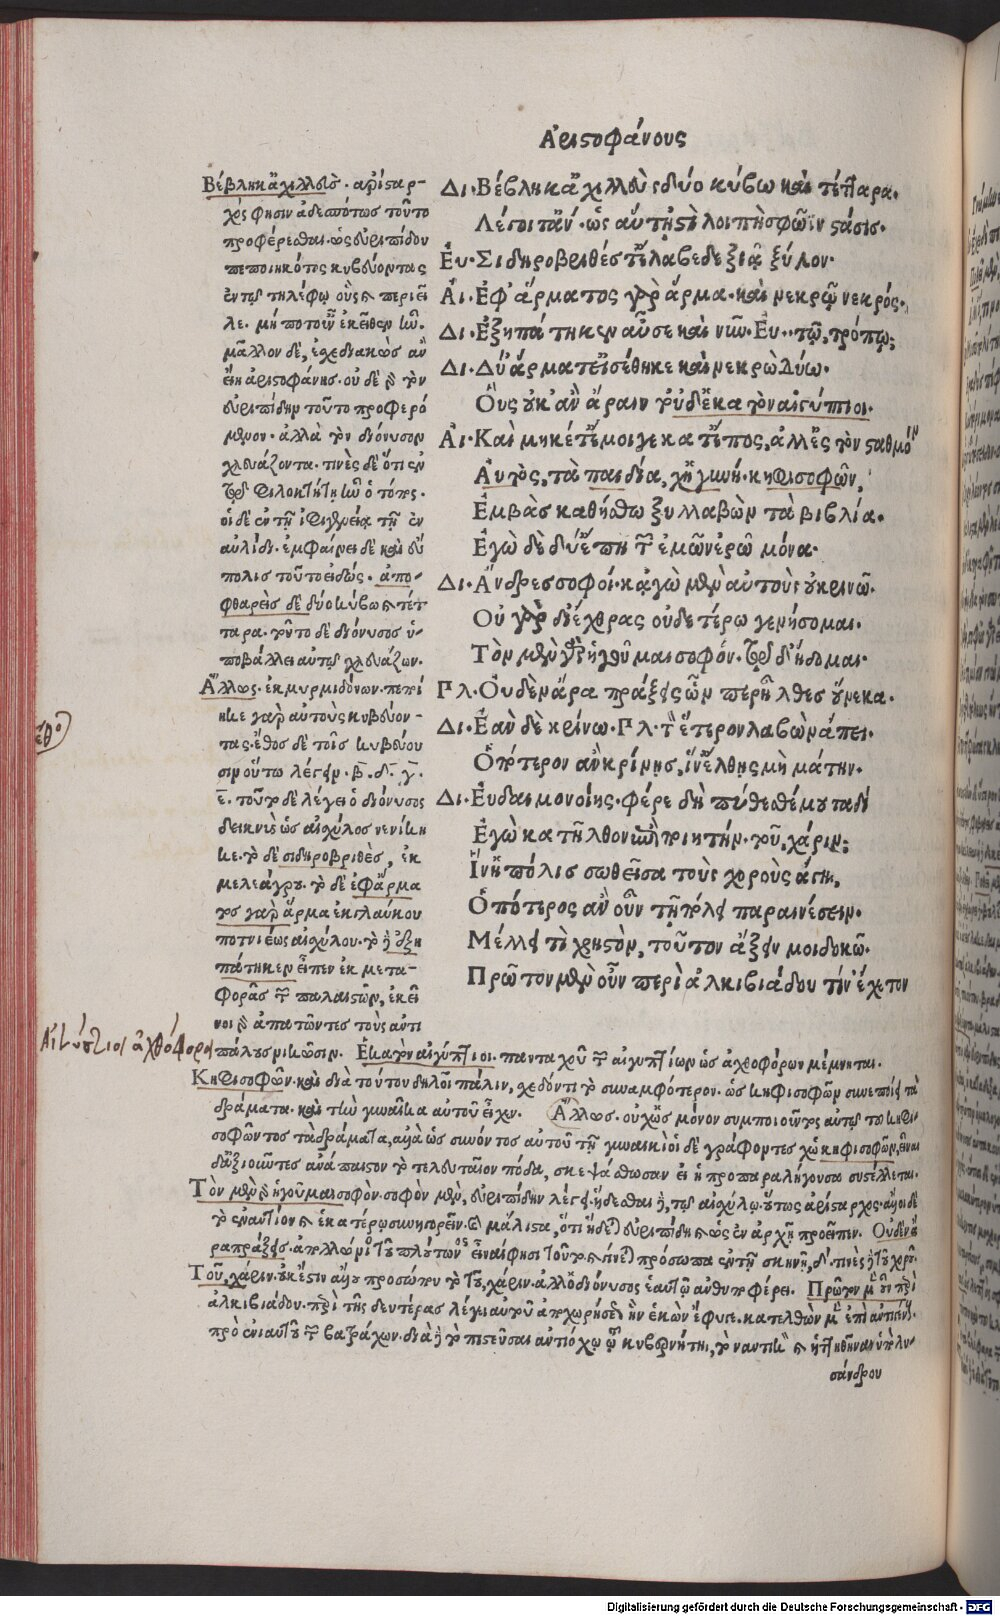 Ἀριστοφάνους
Βέβληκ' ἀχιλλεύς. ἀρίσταρ-
χός φησιν ἀδεσπότως τοῦτο
προφέρεσθαι. ὡς εὐριπίδου
πεποιηκότος κυβεύοντας
ἐν τῷ τηλέφῳ οὓς καὶ περιεῖ
λε. μήποτ' οὖν ἐκεῖθεν ἦν.
μᾶλλον δὲ, ἐσχεδιακὼς ἂν
εἴη ἀριστοφάνης. οὐδὲ γὰρ τὸν
εὐριπίδην τοῦτο προφερό
μενον. ἀλλὰ τὸν διόνυσον
χλευάζοντα. τινὲς δὲ ὅτι ἐν
τῷ φιλοκτήτῃ ἦν ὁ τόπος.
οἱ δὲ ἐν τῇ ἰφιγενείᾳ τῇ ἐν
αὐλίδι. ἐμφαίνει δὲ καὶ εὔ
πολις τοῦτο εἰδώς. ἀπο-
φθαρεὶς δὲ δύο κύβω καὶ τέτ
ταρα. τοῦτο δὲ διόνυσος ὑ-
ποβάλλει αὐτῷ χλευάζων.
Ἄλλως. ἐκ μυρμιδόνων. πεποί
ηκε γὰρ αὐτοὺς κυβεύον-
τας. ἔθος δὲ τοῖς κυβεύου
σιν οὕτω λέγειν. β. δ. γ.
ε. τοῦτο δὲ λέγει ὁ διόνυσος
δεικνὺς ὡς αἰσχύλος νενίκη
κε. τὸ δὲ σιδηροβριθὲς, ἐκ
μελεάγρου. τὸ δὲ ἐφ' ἅρμα
τος γὰρ ἅρμα ἐκ γλαύκου
ποτνιέως αἰσχύλου. τὸ δὲ ἐξη
πάτηκεν εἶπεν ἐκ μετα-
φορᾶς τῶν παλαιστῶν, ἐκεῖ
νοι γὰρ ἀπατῶντες τοὺς ἀντι
πάλους νικῶσιν. Ἑκατὸν αἰγύπτιοι. πανταχοῦ τῶν αἰγυπτίων ὡς ἀχθοφόρων μέμνηται.
Δι. Βέβληκ' ἀχιλλεὺς δύο κύβω καὶ τέτταρα.
Λέγοιτ' ἄν. ὡς αὕτη 'στὶ λοιπὴ σφῷν στάσις.
Ευ. Σιδηροβριθές τ' ἔλαβε δεξιᾷ ξύλον.
Αι. Ἐφ' ἅρματος γὰρ ἅρμα. καὶ νεκρῷ νεκρός.
Δι. Ἐξηπάτηκεν αὖ σε καὶ νῦν. Ευ. τῷ, τρόπῳ;
Δι. Δύ' ἅρματ' εἰσέθηκε καὶ νεκρὼ δύω.
Οὓς οὐκ ἂν ἄραιντ' οὐδ' ἑκατὸν αἰγύπτιοι.
Αι. Καὶ μηκέτ' ἔμοιγε κατ' ἔπος, ἀλλ' ἐς τὸν σταθμὸν
Αὐτὸς, τὰ παιδία, χἠ γυνή. κηφισοφῶν,
Ἐμβὰς καθήσθω ξυλλαβὼν τὰ βιβλία.
Ἐγὼ δὲ δύ' ἔπη τῶν ἐμῶν ἐρῶ μόνα.
Δι. Ἄνδρες σοφοί. κἀγὼ μὲν αὐτοὺς οὐ κρινῶ.
Οὐ γὰρ δι' ἔχθρας οὐδετέρω γενήσομαι.
Τὸν μὲν γὰρ ἡγοῦμαι σοφόν. τῷ δ' ἥδομαι.
Γλ. Οὐδὲν ἄρα πράξεις ὧν περ ἦλθες οὕνεκα.
Δι. Ἐὰν δὲ κρίνω. Γλ. τὸν ἕτερον λαβὼν ἄπει.
Ὁπότερον ἂν κρίνῃς, ἵν' ἔλθῃς μὴ μάτην.
Δι. Εὐδαιμονοίης. φέρε δὴ πύθεσθέ μου ταδί
Ἐγὼ κατῆλθον ἐπὶ ποιητήν. τοῦ, χάριν;
Ἵν' ἡ πόλις σωθεῖσα τοὺς χοροὺς ἄγῃ,
Ὁπότερος ἂν οὖν τῇ πόλει παραινέσειν.
Μέλλει τὶ χρηστὸν, τοῦτον ἄξειν μοι δοκῶ.
Πρῶτον μὲν οὖν περὶ ἀλκιβιάδου τίν' ἔχετον
Κηφισοφῶν. καὶ διὰ τούτου δηλοῖ πάλιν, σχεδόν τι τὸ συναμφότερον. ὡς κηφισοφῶν συνεποίει τὰ
δράματα. καὶ τὴν γυναῖκα αὐτοῦ εἶχεν. Ἄλλως. οὐχ ὡς μόνον συμποιοῦντος αὐτῷ τοῦ κηφι-
σοφῶντος τὰ δράματα, ἀλλὰ ὡς συνόντος αὐτοῦ τῇ γυναικὶ οἱ δὲ γράφοντες χὡ κηφισοφῶν, εἶναι
δ' ἀξιοῦντες ἀνάπαιστον τὸ τελευταῖον πόδα, σκεψάσθωσαν εἰ ἡ προπαραλήγουσα συστέλλεται.
Τὸν μὲν γὰρ ἡγοῦμαι σοφόν. σοφὸν μὲν, εὐριπίδην λέγει. ἥδεσθαι δὲ, τῷ αἰσχύλῳ. οὕτως ἀρίσταρχος. ἄλλοι δὲ
τὸ ἐναντίον καὶ ἑκατέρῳ συνηγορεῖν. καὶ μάλιστα, ὅτι ἥδεται εὐριπίδῃ καὶ ὡς ἐν ἀρχῇ προεῖπεν. Οὐδὲν ἄ
ρα πράξεις. ἀπολλώνιος τοῦ πλούτωνος εἶναί φησι τοῦτο καὶ γίνεται πρόσωπα ἐν τῇ σκηνῇ, δ'. τινὲς δὲ τοῦ χοροῦ.
Τοῦ, χάριν. οὐκ ἔστιν ἄλλου προσώπου τὸ τοῦ, χάριν. ἀλλ' ὁ διόνυσος ἑαυτῷ ἀνθυποφέρει. Πρῶτον μὲν οὖν περὶ
ἀλκιβιάδου. περὶ τῆς δευτέρας λέγει αὐτοῦ ἀποχωρήσεως ἣν ἑκὼν ἔφυγε. κατελθὼν μὲν ἐπὶ ἀντιγένους
πρὸ ἐνιαυτοῦ τῶν βατράχων. διὰ δὲ τὸ πιστεῦσαι ἀντιόχῳ τῷ κυβερνήτῃ, τὸ ναυτικὸν καὶ ἡττηθῆναι ὑπὸ λυ-
σάνδρου
Αἰγύπτιοι ἀχθόφοροι